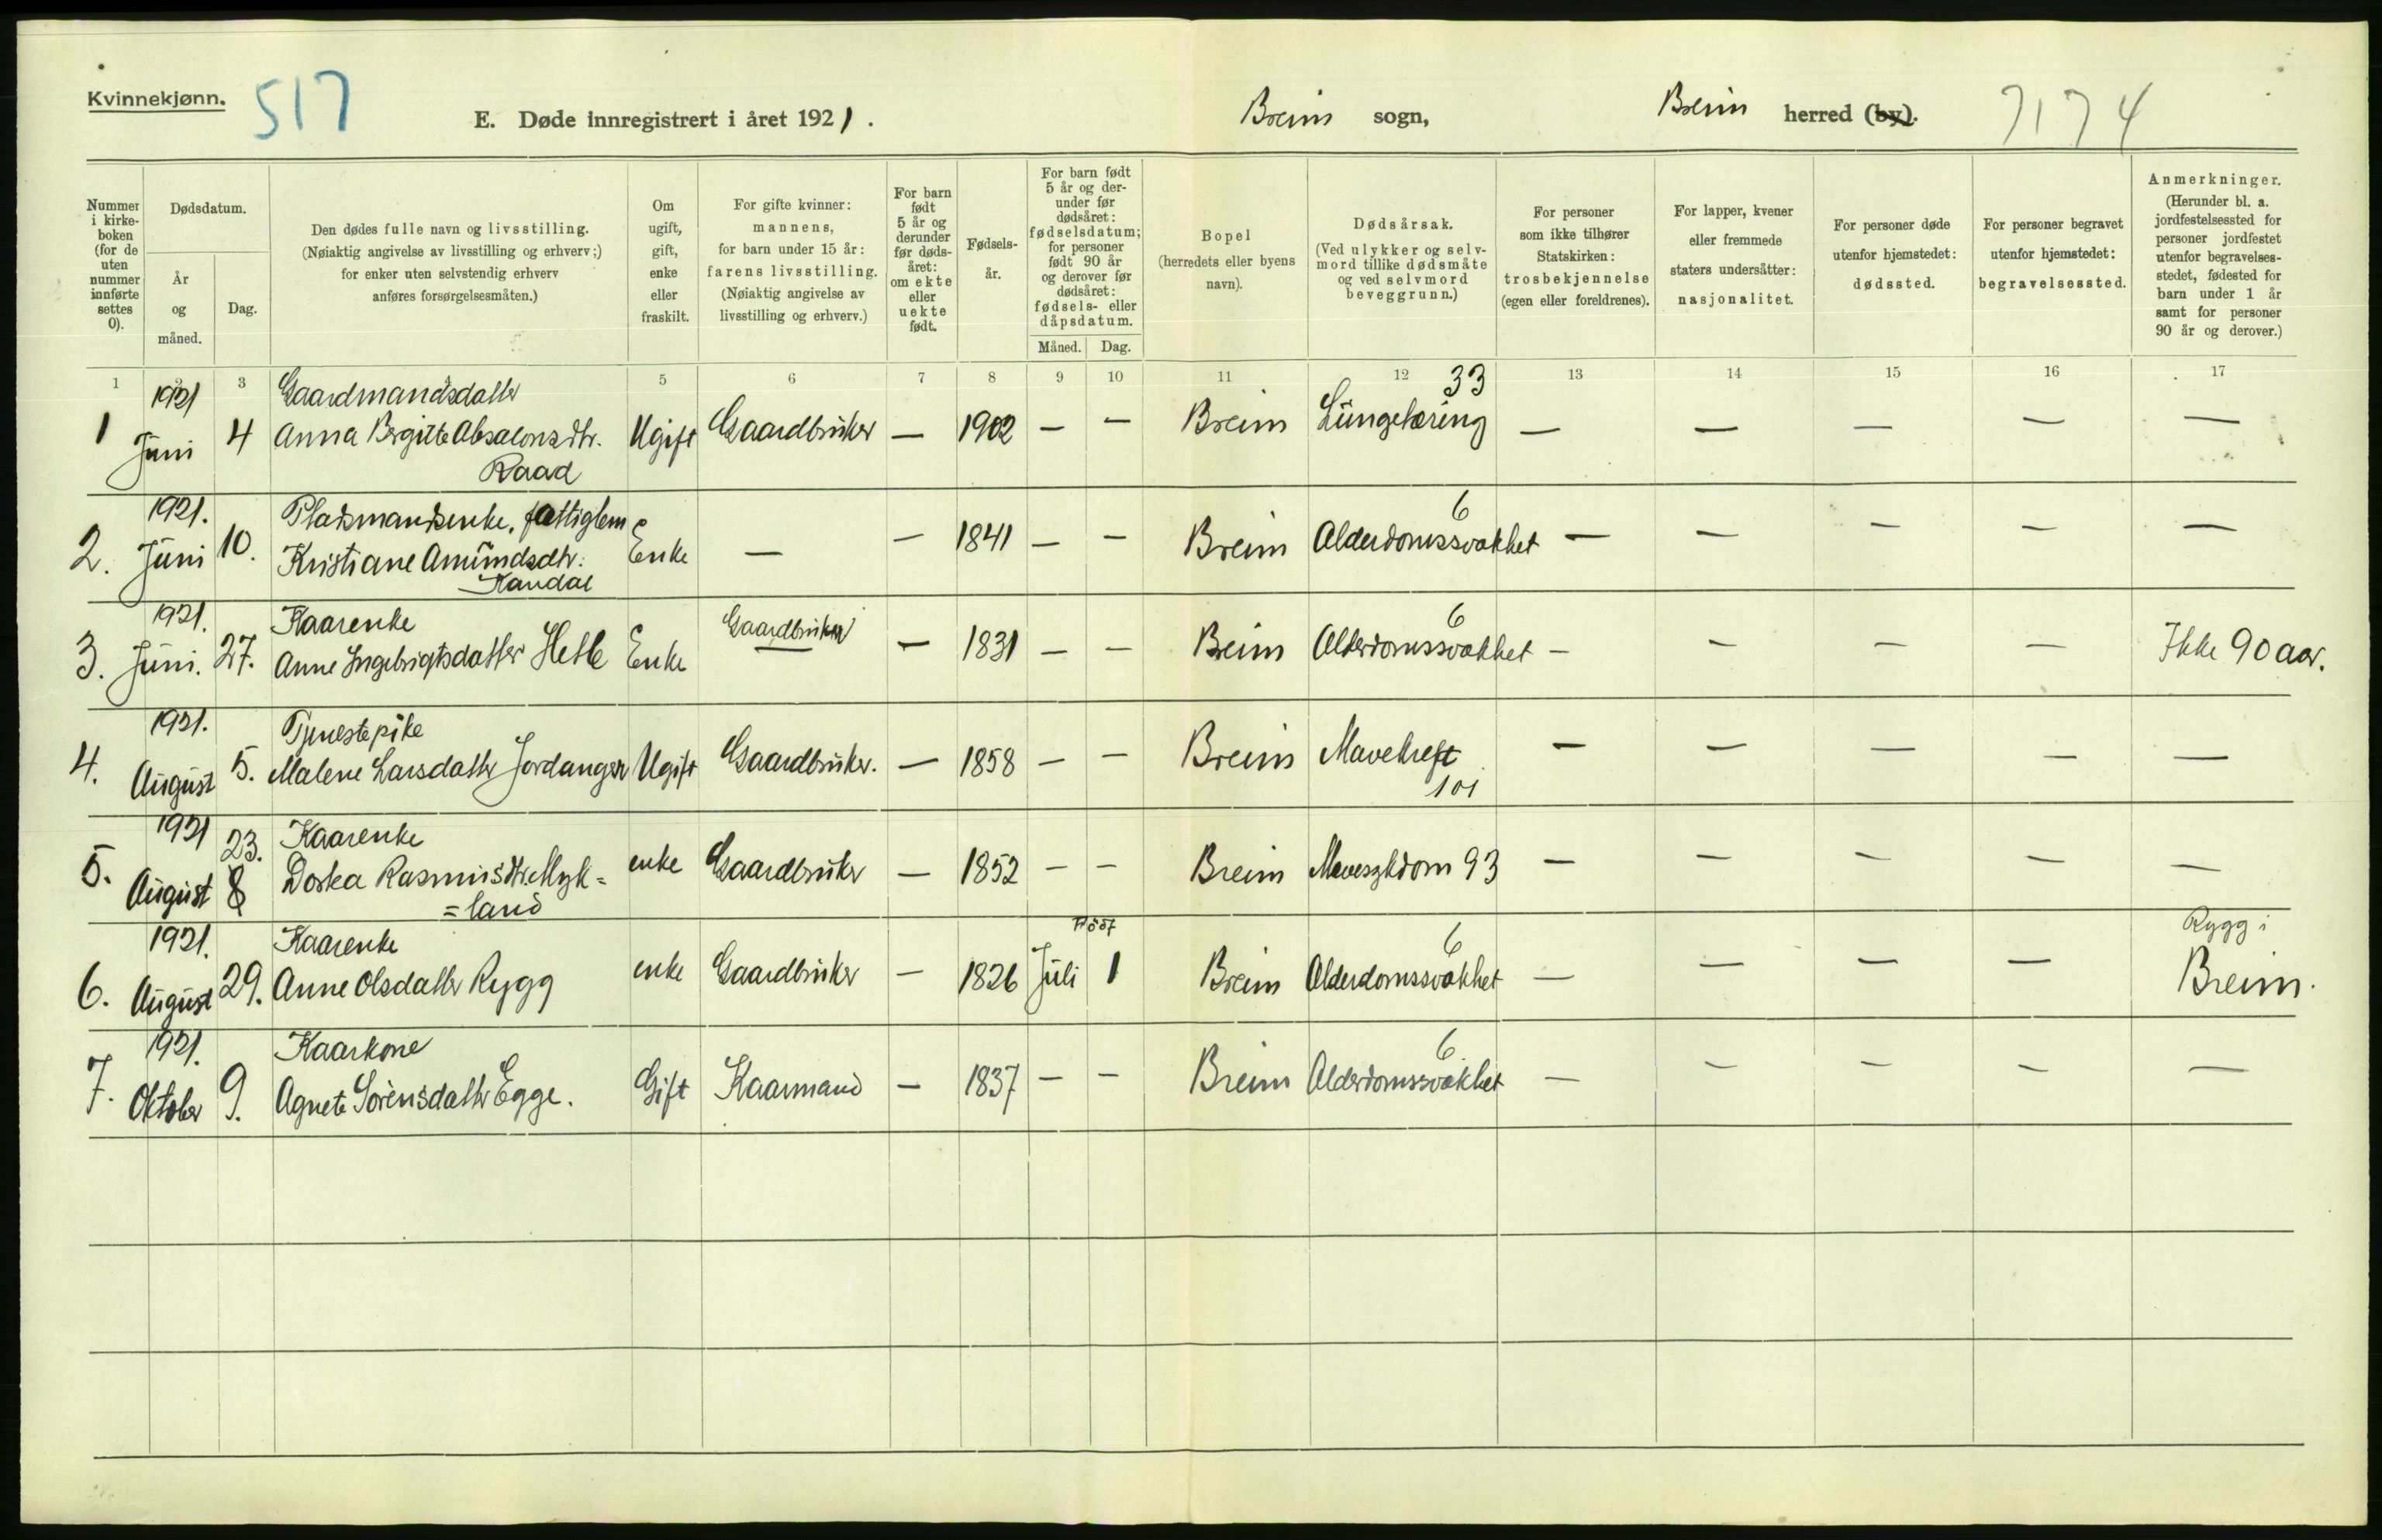 Kvinnekjønn.
517
E. Døde innregistrert i året 1921.
Breim sogn,
Breim herred (by).
7174
Nummer i kirke-boken (for de uten nummer innførte settes 0).
Dødsdatum.
År og måned.
Dag.
Den dødes fulle navn og livsstilling.
(Nøiaktig angivelse av livsstilling og erhverv;)
for enker uten selvstendig erhverv
anføres forsørgelsesmåten.)
Om ugift, gift, enke eller fraskilt.
For gifte kvinner:
mannens,
for barn under 15 år:
farens livsstilling.
(Nøiaktig angivelse av
livsstilling og erhverv.)
For barn født 5 år og derunder før døds-året: om ekte eller uekte født.
Fødsels-år.
For barn født 5 år og der-under før dødsåret: fødselsdatum; for personer født 90 år og derover før dødsåret: fødsels- eller dåpsdatum.
Måned. Dag.
Bopel
(herredets eller byens
navn).
Dødsårsak.
(Ved ulykker og selv-
mord tillike dødsmåte
og ved selvmord
beveggrunn.)
For personer
som ikke tilhører
Statskirken:
trosbekjennelse
(egen eller foreldrenes).
For lapper, kvener
eller fremmede
staters undersåtter:
nasjonalitet.
For personer døde
utenfor hjemstedet:
dødssted.
For personer begravet
utenfor hjemstedet:
begravelsessted.
Anmerkninger.
(Herunder bl. a.
jordfestelsessted for
personer jordfestet
utenfor begravelses-
stedet, fødested for
barn under 1 år
samt for personer
90 år og derover.)
1 2 3 4 5 6 7 8 9 10 11 12 13 14 15 16 17
1921 Gaardmandsdatter 33
1 Juni 4 Anna Bergitte Absalonsdtr. Ugift Gaardbruker — 1902 — — Breim Lungetæring — — — — —
Raad
1921. Pladsmandsenke, fattiglem 6
2. Juni 10. Kristiane Amundsdtr. Enke — — 1841 — — Breim Alderdomssvakhet — — — — —
Kandal
1921. Kaarenke Gaardbruker 6
3. Juni. 27. Anne Ingebrigtsdatter Hetle Enke — — 1831 — — Breim Alderdomssvakhet — — — — Ikke 90 aar.
1921. Tjenestepike
4. August 5. Malene Larsdatter Jordanger Ugift Gaardbruker. — 1858 — — Breim Mavekreft — — — — —
101
1921 23. Kaarenke
5. August 8 Dortea Rasmusdtr. Myk= enke Gaardbruker — 1852 — — Breim Mavesykdom 93 — — — — —
=land
1921. Kaarenke Född 6 Rygg i
6. August 29. Anne Olsdatter Rygg enke Gaardbruker — 1826 Juli 1 Breim Alderdomssvakhet — — — — Breim.
1921. Kaarkone 6
7. Oktober 9. Agnete Sörensdatter Egge. Gift Kaarmand — 1837 — — Breim Alderdomssvakhet — — — — —